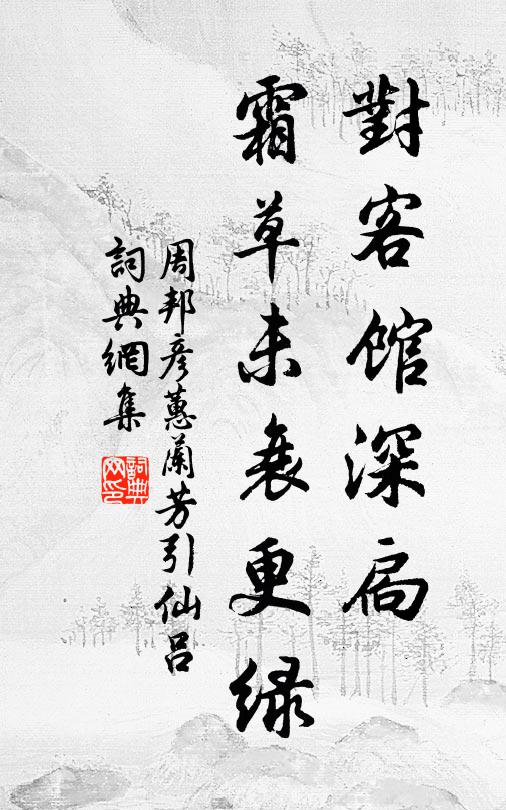 對客館深扃
霜草未衰更綠
周邦彥蕙蘭芳引仙呂
詞典網集
詞典
网印